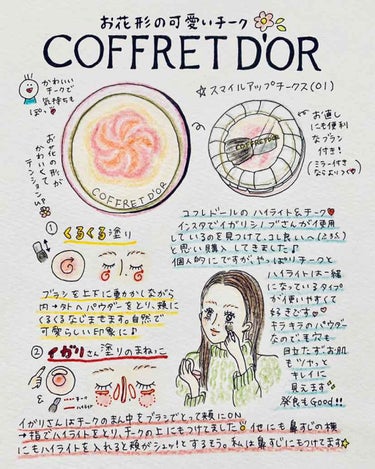 お花形の可愛いチーク
COFFRET D'OR
かわいい
チークで
気持ちも
☆スマイルアップチークス(01)
お花の形が
かわいくて
テンションup
COFFRET D'OR
COFFRET D'OR
お直し
にも便利
なブラシ
付き！
(ミラー付き
ならよりつく)
コフレドールのハイライト&チーク
インスタでイガリシノブさんが使用
しているのを見つけて、コレ良いへ(とろ)と
思いと購入してました♪
個人的にですが、やっぱりチークと
ハイライトは一緒
になっているタイプ
が使いやすくて
好きです。
キラキラのパウダー
なので、毛穴も
目立たずお肌
もツヤっと
キレイに
見えます
発色もGood!!
① くるくる塗り
ブラシを上下に動かかしながら
内→外へパウダーをとり、頬に
くるくるなじませます。自然で
可愛らしい印象に♪
② イガリさん塗りのまねっこ
チーク
ハイライト
イガリさんはチークのまん中をブラシでとって頬にON
→指でハイライトをとり、チークの上にもつけてました 他にも鼻すじの横
にもハイライトを入れると頬がシュッ!とするそう。私は鼻すじにもつけてます